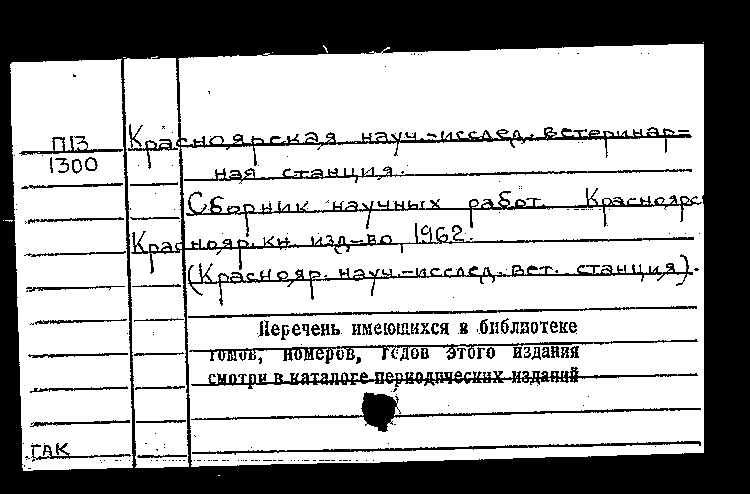 П13
1300
Красноярская науч.-исслед. ветеринар=
ная станция.
Сборник научных работ. Краснояр
Краснояр. кн. изд-во, 1962.
(Краснояр. науч.-исслед. вет. станция).
Перечень имеющихся в библиотеке
томов, номеров, годов этого издания
смотри в каталоге периодических изданий
ГАК